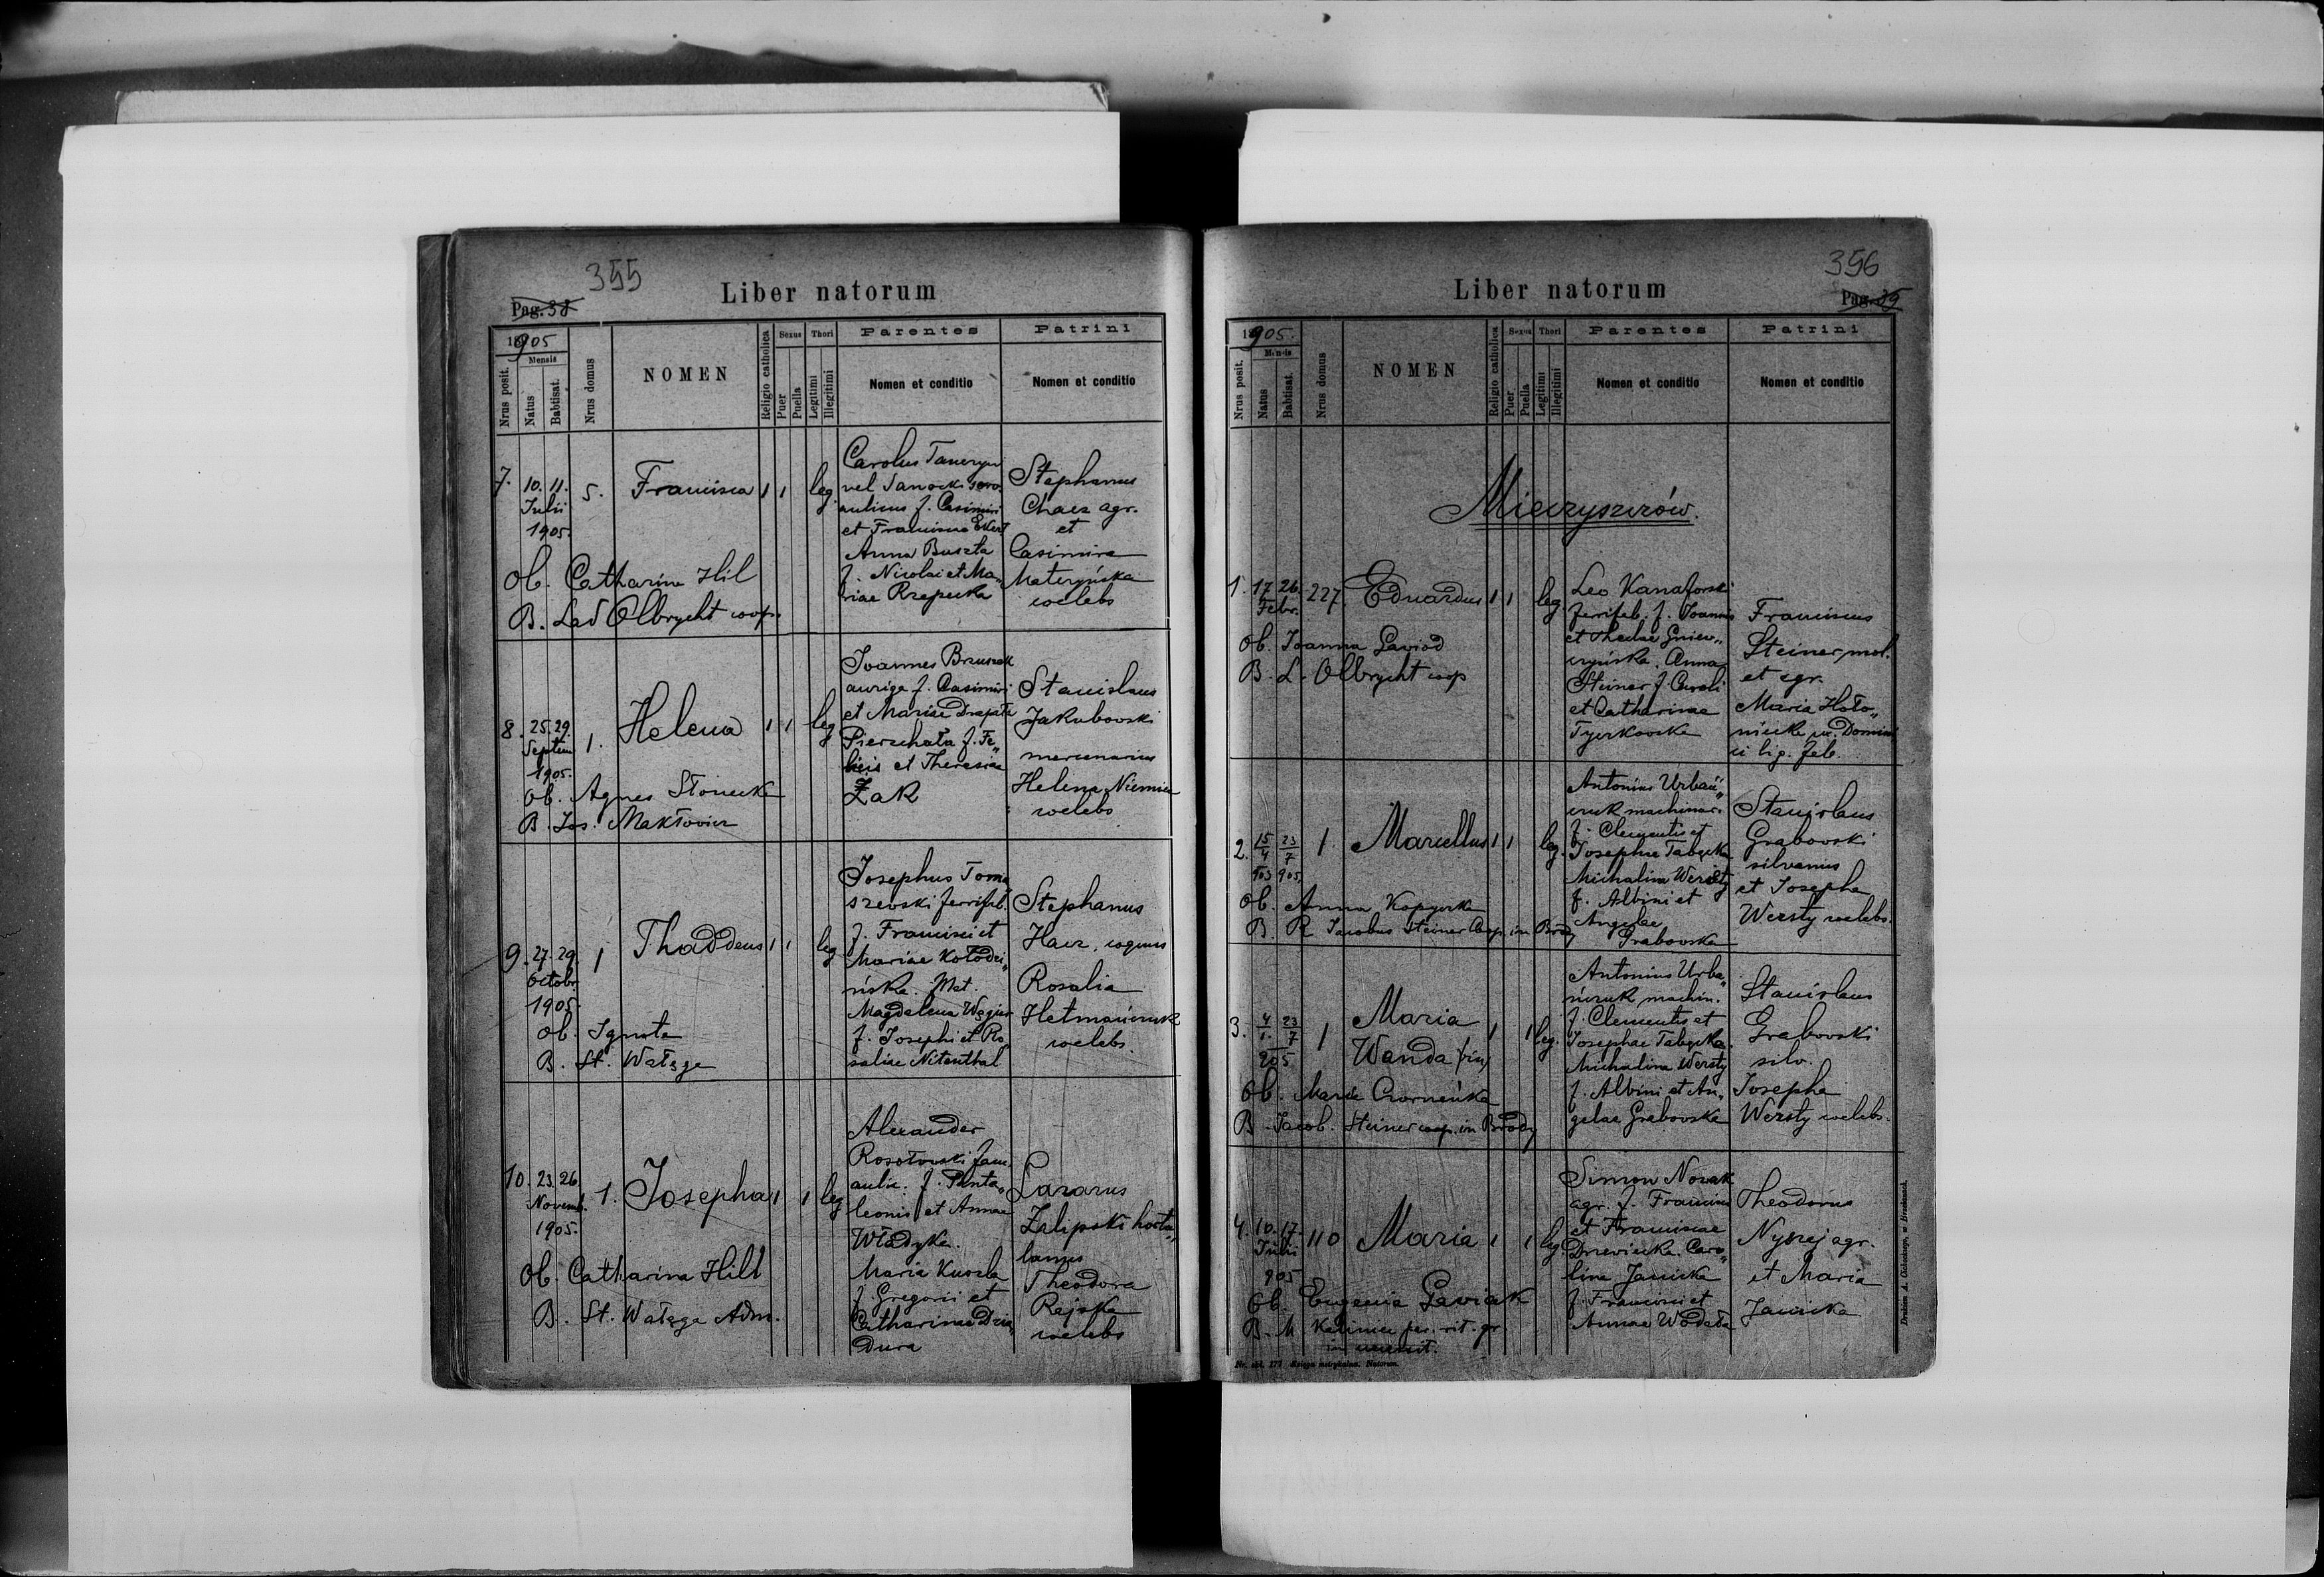 355
Pag. 38
Liber natorum
1905
Mensis
Nrus posit.
Natus
Babtisat.
Nrus domus
NOMEN
Religio catholica
Sexus
Puer
Puella
Thori
Legitimi
Illegitimi
Parentes
Nomen et conditio
Patrini
Nomen et conditio
7. 10. 11. 5. Francisca 1 1 leg.
Julii
1905.
Carolus
vel Sanocki
aulicus f. Casimiri
et Franciscae
Anna Buszta
f. Nicolai et Ma„
riae Rzepecka
Stephanus
Chaez agr.
et
Casimira
Materyńska
coelebs
Ob. Catharina Hil
B. Lad Olbrycht coop.
8. 25. 29. 1. Helena 1 1 leg
Septem
1905.
Joannes Bzuszak
auriga f. Casimiri
et Mariae Drapała
Pierzchała f. Fe„
licis et Theresiae
Żak
Stanislaus
Jakubowski
mercenarius
Helena Niemiec
coelebs
Ob. Agnes Słonecka
B. Jos. Makłowicz
9. 27. 29 1 Thaddeus 1 1 leg
Octobr.
1905.
Josephus Toma
szewski ferrifab.
f. Francisci et
Mariae Kołodzi„
ńska. Mat.
Magdalena Węgier
f. Josephi et Ro
saliae Nitenthal
Stephanus
Hacz, coquus
Rosalia
Hetmańczuk
coelebs.
Ob. Ignota
B. St. Wałęga
10. 23. 26 1. Josepha 1 1 leg
Novemb.
1905.
Alexander
Rosołowski fam.
aulic. f. Panta„
leonis et Annae
Władyka.
Maria Kuszla
f. Gregorii et
Catharinae Dzia„
dura
Lazarus
Zalipski hortu„
lanus
Theodora
Rejska
coelebs
Ob. Catharina Hill
B. St. Wałęga Adm.
356
Pag. 39
Liber natorum
1905.
Mensis
Nrus posit.
Natus
Babtisat.
Nrus domus
NOMEN
Religio catholica
Sexus
Puer
Puella
Thori
Legitimi
Illegitimi
Parentes
Nomen et conditio
Patrini
Nomen et conditio
Mieczyszczów.
1. 17 26. 227. Eduardus 1 1 leg.
Febr.
Leo Kanaforski
ferrifab. f. Joannis
et Theclae Gniew„
czyńska. Anna
Steiner f. Caroli
et Catharinae
Tyczkowska
Franciscus
Steiner, mol.
et agr.
Maria Hoło„
nińcka ux. Domini
ci lig. fab.
Ob. Joanna Gawiod
B. L. Olbrycht coop
2. 15/4 903 23/7 905. 1. Marcellus 1 1 leg.
Antonius Urbań„
czuk machinar.
f. Clementis et
Josephae Tabęcka
Michalina Werszty
f. Albini et
Angelae
Grabowska
Stanislaus
Grabowski
silvanus
et Josepha
Werszty coelebs.
Ob. Anna Kopycka
B. R. Jacobus Steiner Coop. in Brody
3. 4/1. 23/7 905 1 Maria 1 1 leg.
Wanda
Antonius Urba„
ńczuk machin.
f. Clementis et
Josephae Tabęcka.
Michalina Werszty
f. Albini et An„
gelae Grabowska
Stanislaus
Grabowski
silv.
Josepha
Werszty coelebs.
Ob. Maria Czorneńka
B. Jacob. Steiner coop. in Brody
4. 10. 17. 110 Maria 1 1 leg
Julii
905
Simon Nowak
agr. f. Francisci
et Franciscae
Drzewiecka. Caro„
lina Janicka
f. Francisci et
Annae Wodała
Theodorus
Nyszej agr.
et Maria
Janicka
Ob. Eugenia Gawiak
B. M. Kalinicz par. rit. gr.
in
Nr. skł. 177. Księga metrykalna. Natorum.